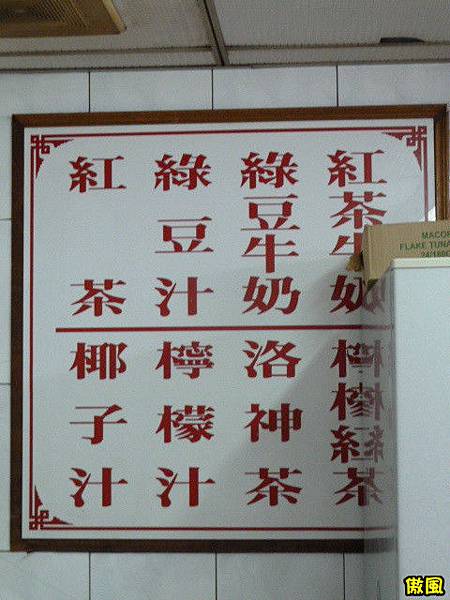 紅茶牛奶
綠豆牛奶
綠豆汁
紅茶
檸檬紅茶
洛神茶
檸檬汁
椰子汁
FLAKE TUNA
傲風